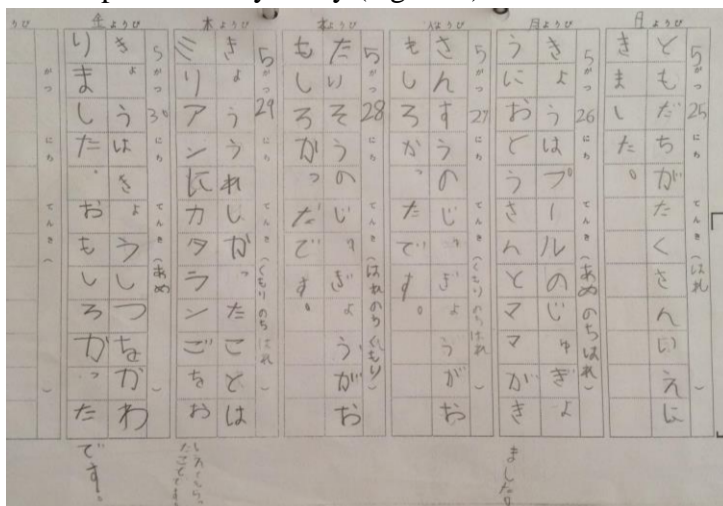 日ようび
5がつ25にち てんき(はれ)
ともだちがたくさんいえに
きました。
月ようび
5がつ26にち てんき(あめのちはれ)
きょうはプールのじゅぎょ
うにおとうさんとママがき
ました。
ようび
5がつ27にち てんき(くもりのちはれ)
さんすうのじゅぎょうがお
もしろかったです。
ようび
5がつ28にち てんき(はれのちくもり)
たいそうのじゅぎょうがお
もしろがっだです。
木ようび
5がつ29にち てんき(くもりのちはれ)
きょううれしかったことは
ミリアンにカタランごをお
ようび
5がつ30にち てんき(あめ)
きょうはきょうしつをかわ
りました。おもしろかった
です。
うび
がつ にち てんき(